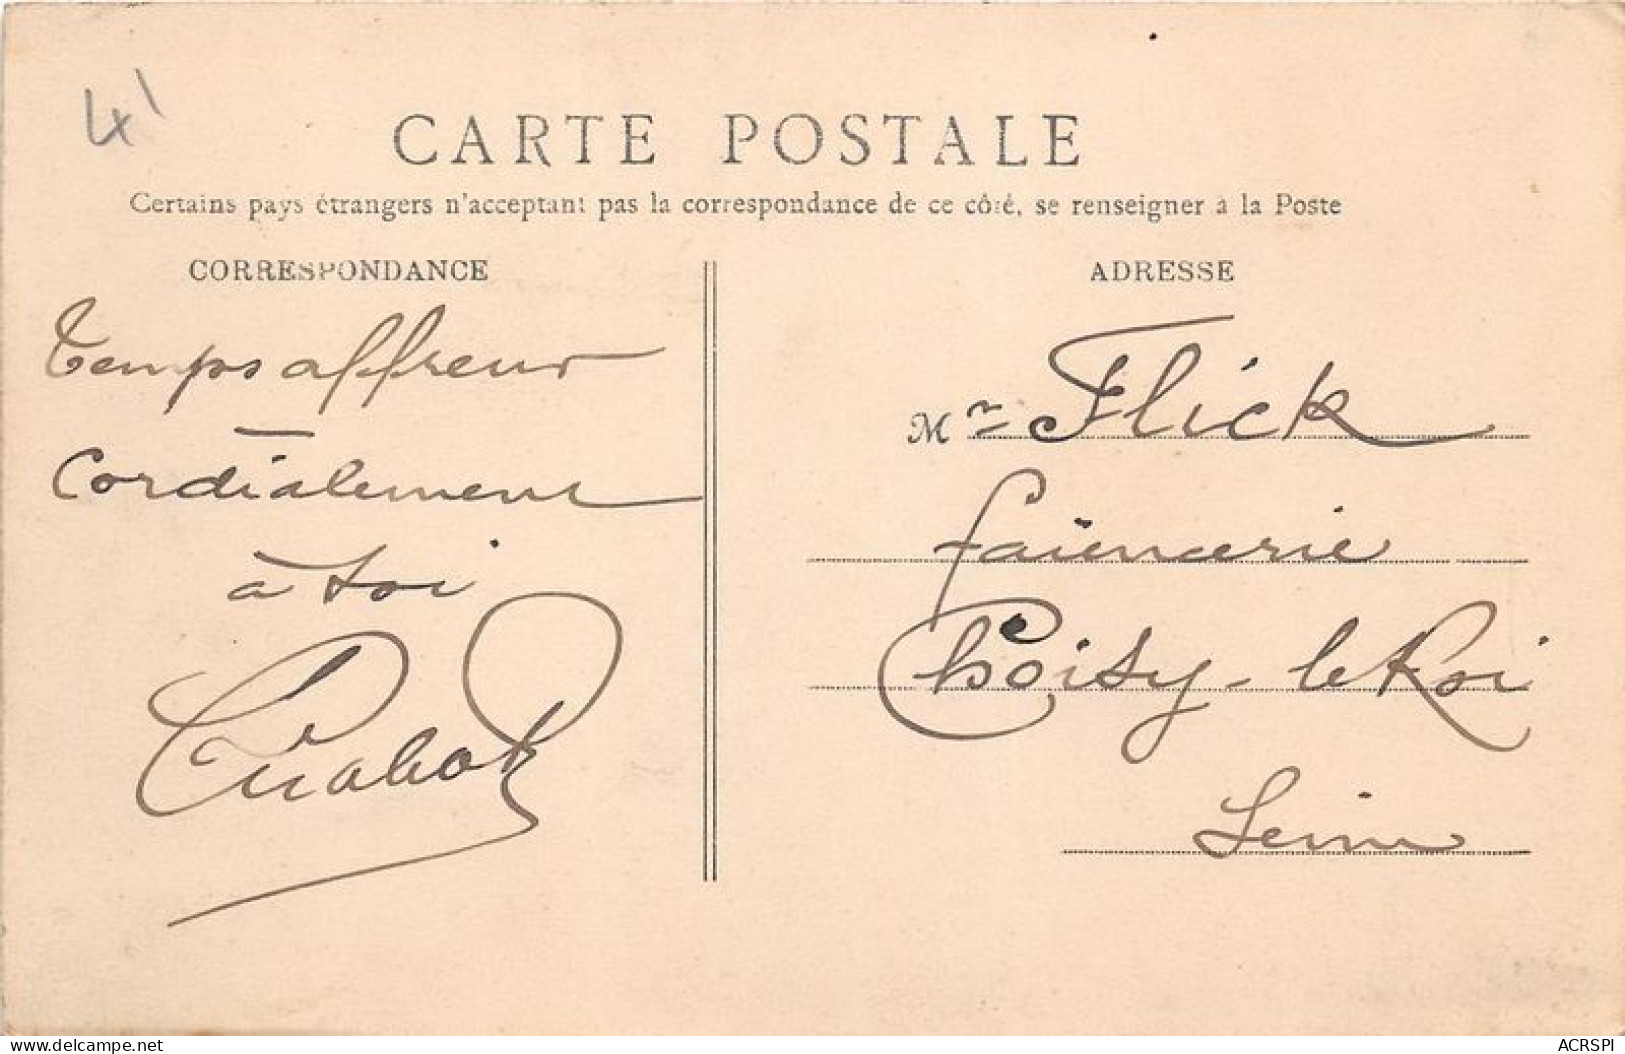 4
CARTE POSTALE
Certains pays étrangers n'acceptant pas la correspondance de ce côté, se renseigner à la Poste
CORRESPONDANCE
Temps affreux
Cordialement
à toi
ADRESSE
Mr Flick
faïencerie
Choisy-le Roi
Seine
www.delcampe.net
ACRSPI